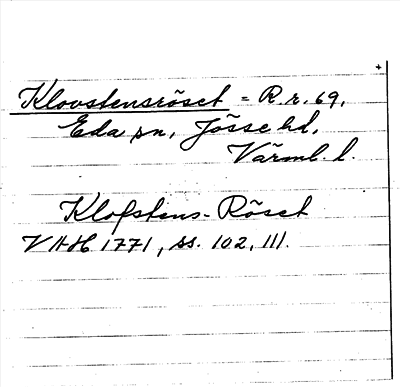 Klovstensröset = R.r. 69.
Eda sn, Jösse hd,
Värml. l.
Klofstens-Röset
VAH 1771, ss. 102, 111.